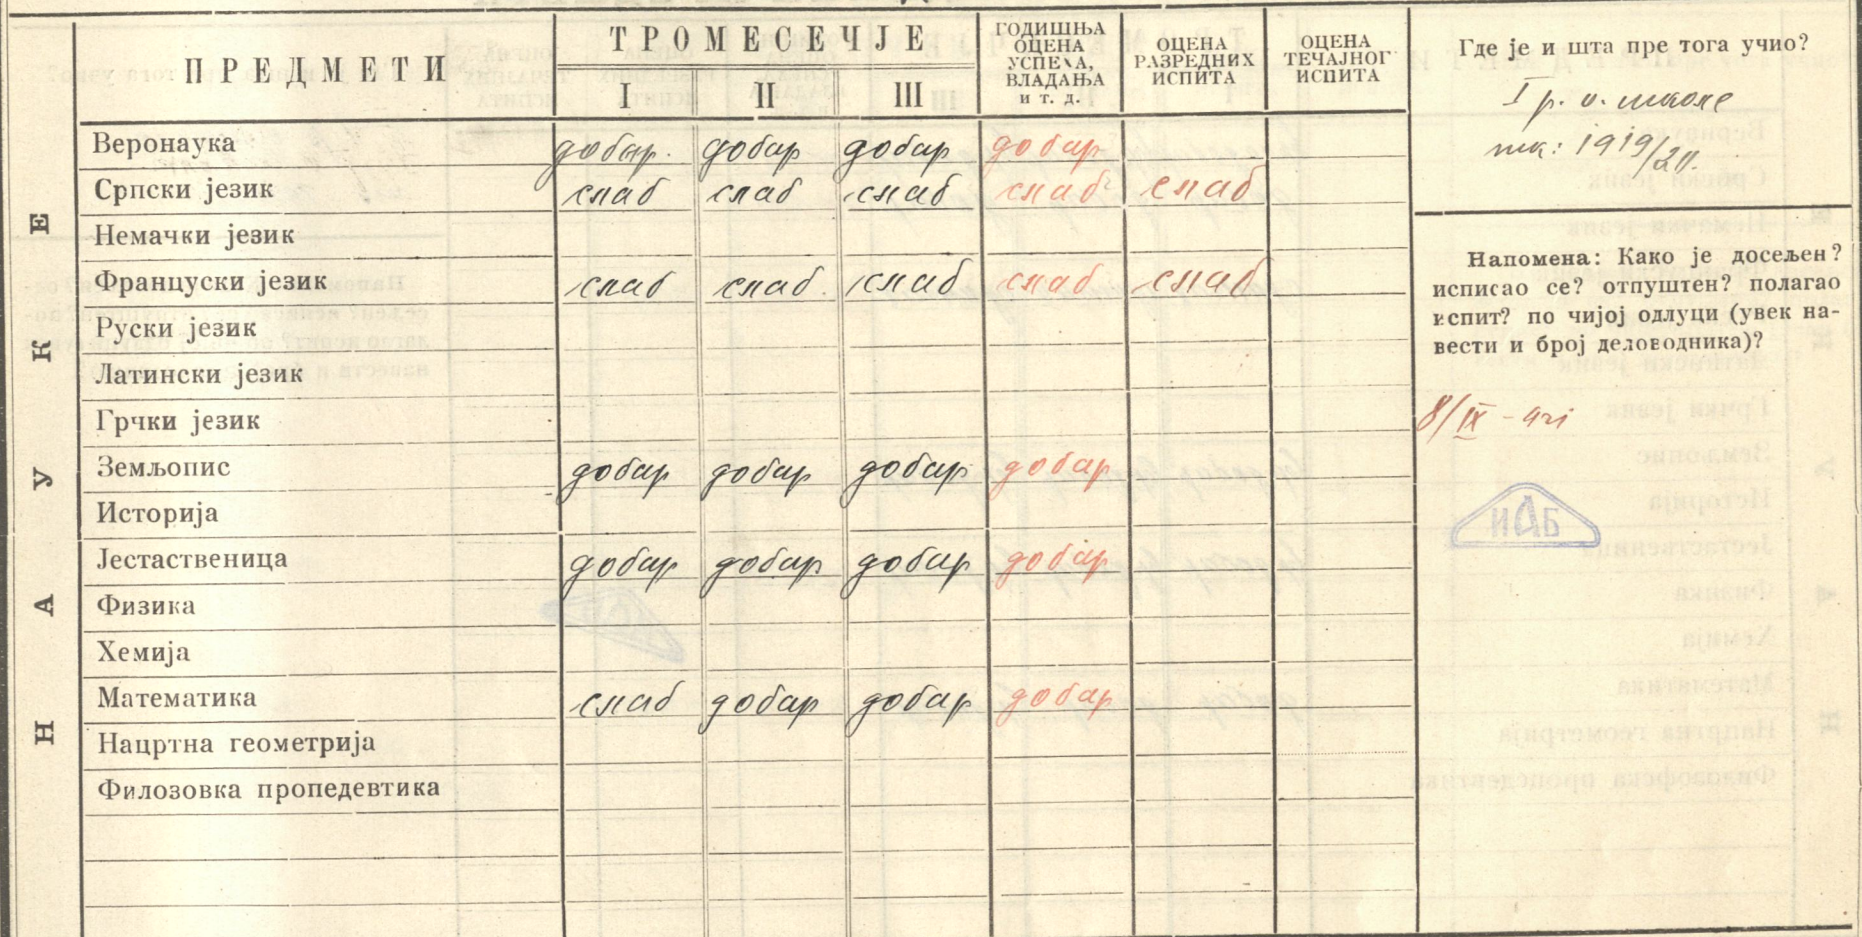 ПРЕДМЕТИ
ТРОМЕСЕЧЈЕ
I II III
ГОДИШЊА
ОЦЕНА
УСПЕХА,
ВЛАДАЊА
и т. д.
ОЦЕНА
РАЗРЕДНИХ
ИСПИТА
ОЦЕНА
ТЕЧАЈНОГ
ИСПИТА
НАУКЕ
Веронаука добар. добар добар добар
Српски језик слаб слаб слаб слаб слаб
Немачки језик
Француски језик слаб слаб слаб слаб слаб
Руски језик
Латински језик
Грчки језик
Земљопис добар добар добар добар
Историја
Јестаственица добар добар добар добар
Физика
Хемија
Математика слаб добар добар добар
Нацртна геометрија
Филозовка пропедевтика
Где је и шта пре тога учио?
I р. о. школе
шк: 1919/20.
Напомена: Како је досељен?
исписао се? отпуштен? полагао
испит? по чијој одлуци (увек на-
вести и број деловодника)?
8/IX
ИАБ